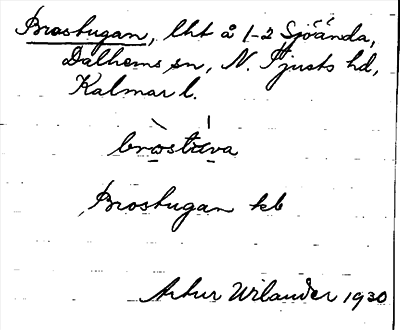 Brostugan, lht å 1-2 Sjöända,
Dalhems sn, N. Tjusts hd,
Kalmar l.
bròstúva
Brostugan kb
Artur Wilander 1930